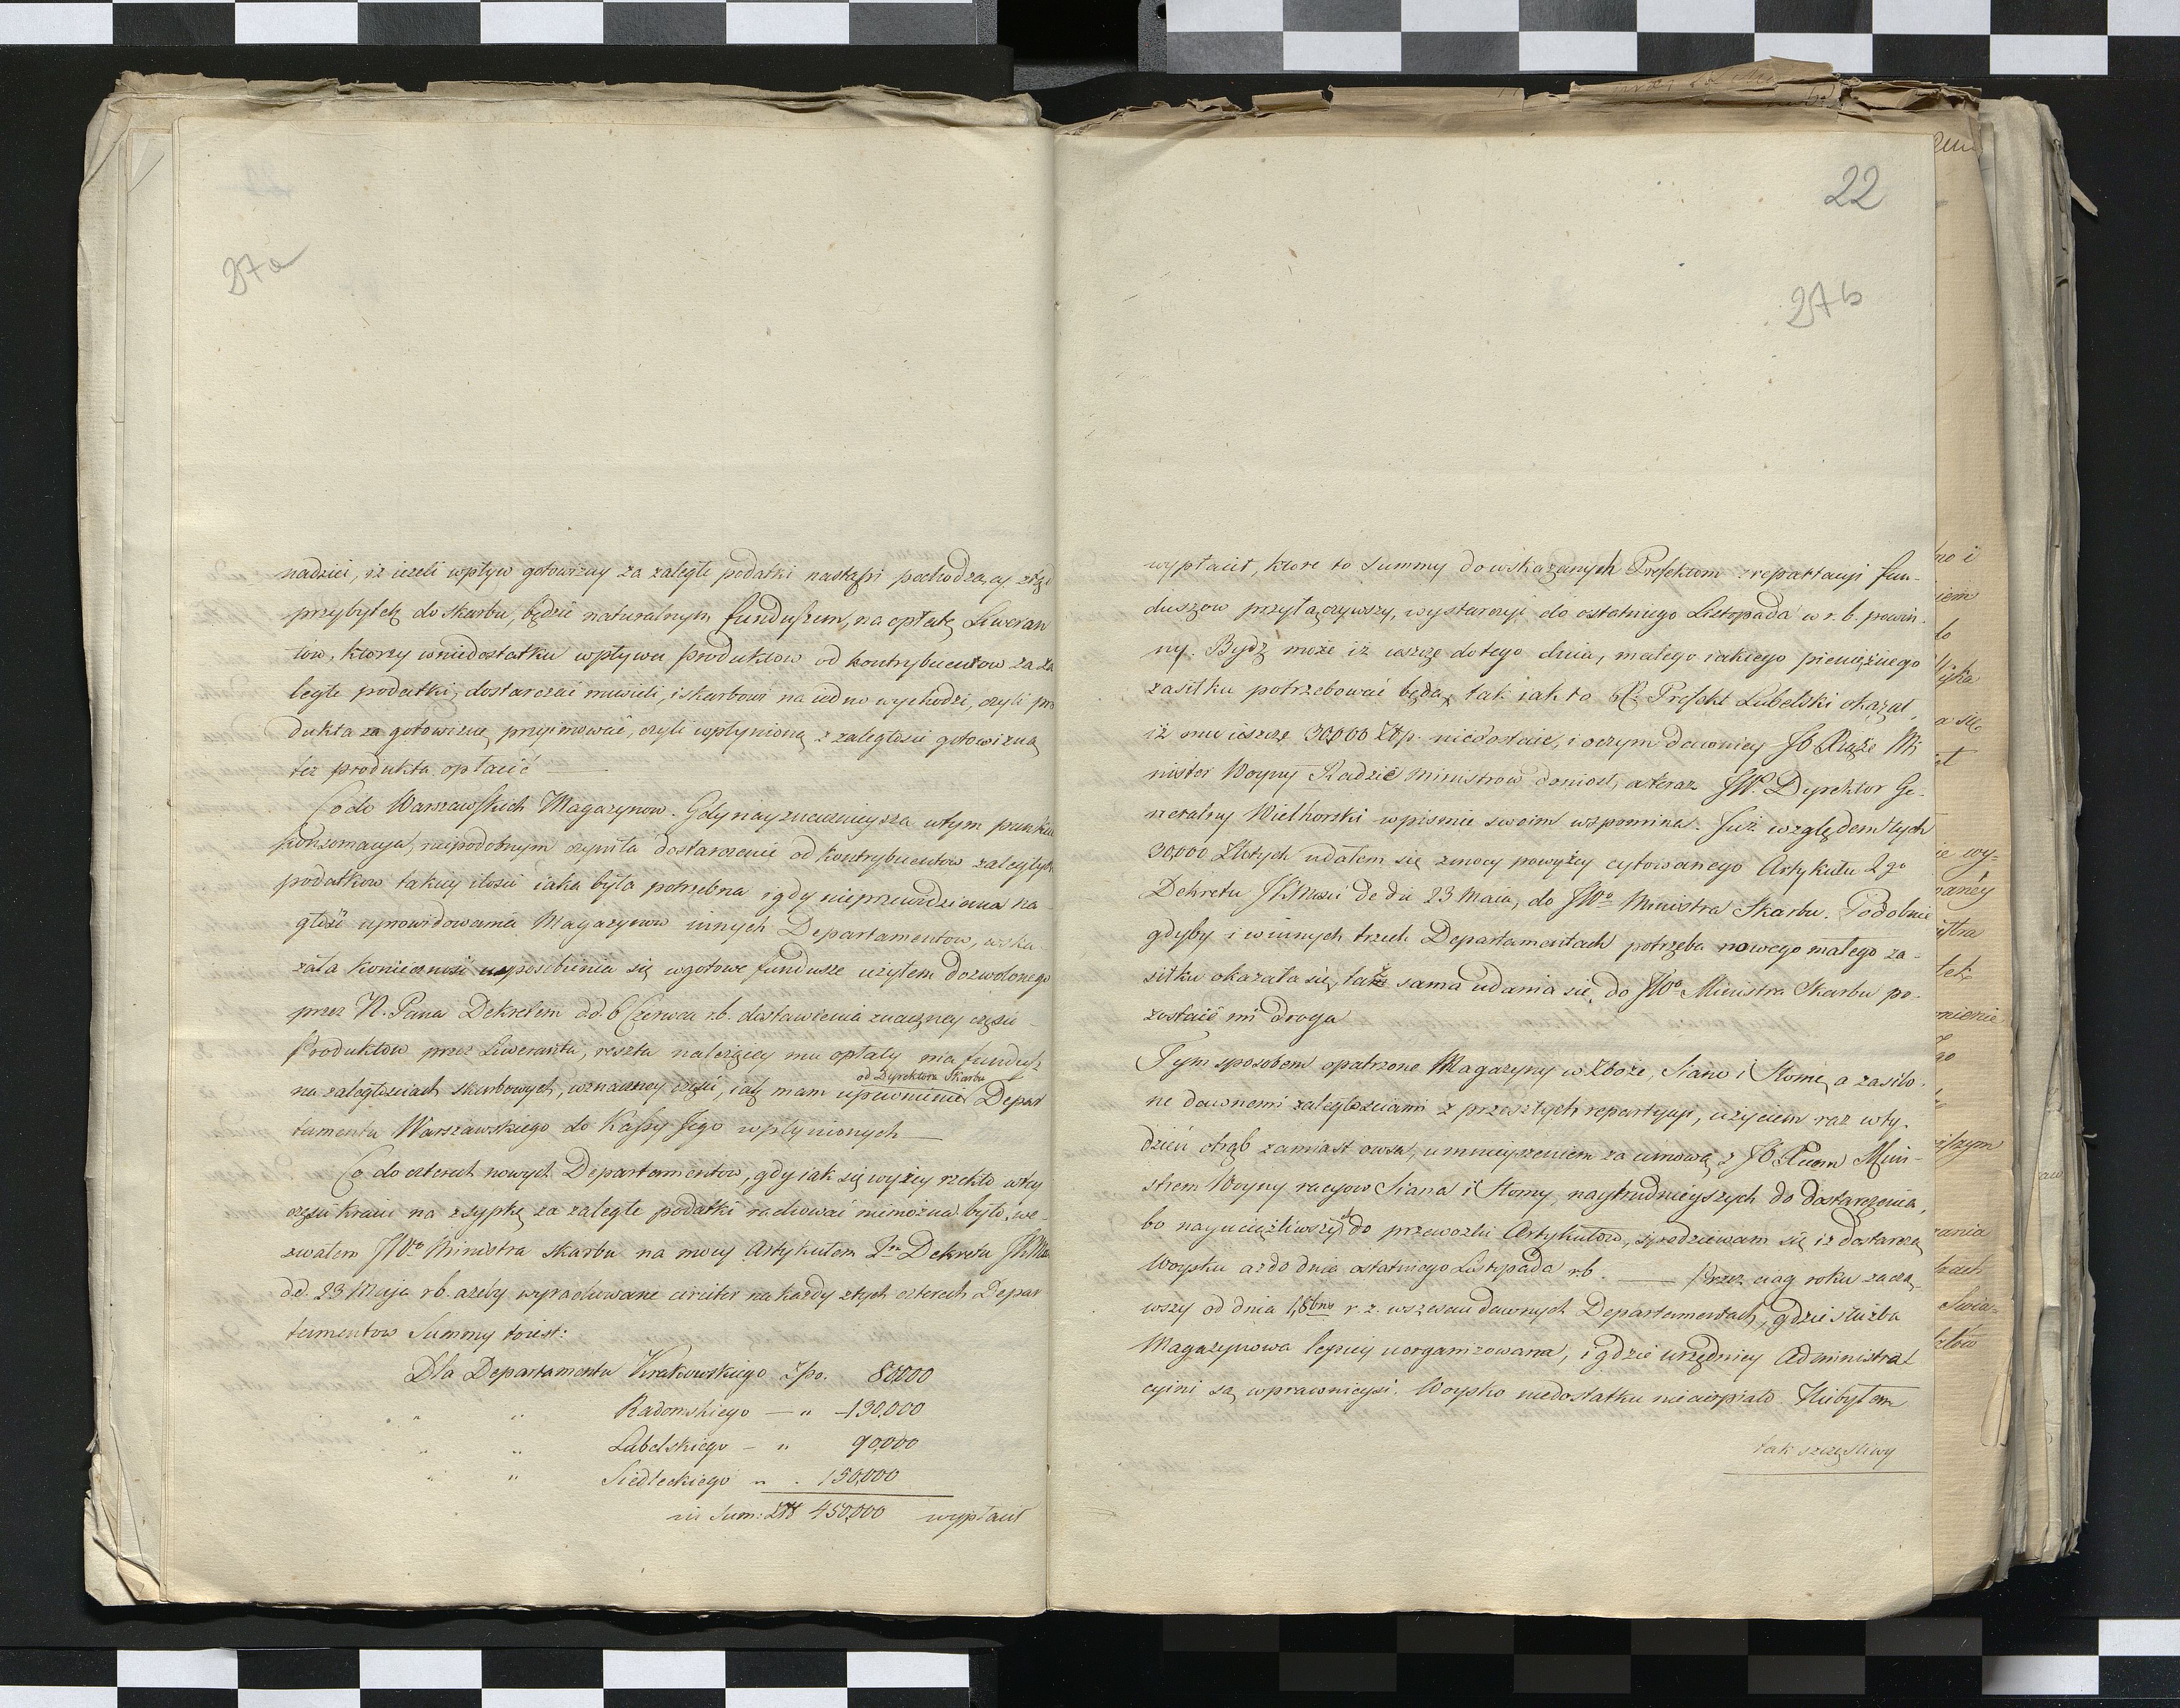 27a
nadziei, iż ieżeli wpływ gotowizny za zaległe podatki nastąpi pochodzący ztąd
przybytek do skarbu, będzie naturalnym funduszem, na opłatę Liweran
tów, ktorzy w niedostatku wpływu produktow od kontrybuentow za za
ległe podatki, dostarczać musieli, i skarbowi na iedno wychodzi, czyli pro
dukta za gotowiznę przyimować, czyli wpłynioną z zaległości gotowizną
też produkta opłacić —
Co do Warszawskich Magazynow. Gdy nayznacznieysza w tym punkcie
konsomacya, niepodobnym czyniła dostarczenie od kontrybuentow zaległych
podatkow takiey ilości iaka była potrzebna i gdy nieprzewidziana na-
głość uprowidowania Magazynow innych Departamentow, wska-
zała konieczność usposobienia się w gotowe fundusze użyłem dozwolonego
przez N. Pana Dekretem d.d. 6 Czerwca r.b. dostawienia znaczney części
Produktow przez Liweranta, reszta należącey mu opłaty ma fundusz
od Dyrektora Skarbu
na zaległościach skarbowych, w znaczney części, iak mam upewnienie Depar
tamentu Warszawskiego do Kassy Jego wpłynionych —
Co do czterech nowych Departamentow, gdy iak się wyżey rzekło w tey
części kraiu na zsypkę za zaległe podatki rachować niemożna było, we-
zwałem JWo Ministra Skarbu na mocy Artykułem 2m Dekretu JKMci
d.d. 23 Maja r.b. ażeby wyrachowane circiter na każdy z tych czterech Depar
tamentow Summy toiest:
Dla Departamentu Krakowskiego Złpo. 80,000
" " Radomskiego — " 130,000
" " Lubelskiego — " 90,000
" " Siedleckiego " 150,000
in Sum: Złł 450,000 wypłacił
22
27b
wypłacił, ktore to Summy do wskazanych Prefektom z repartycyi fun-
duszow przyłączywszy, wystarczyć do ostatniego Listopada w r.b. powin-
ny. Bydz może iż ieszcze do tego dnia, małego iakiego pieniężnego
zasiłku potrzebować będą, tak iak to Prefekt Lubelski okazał,
iż mu ieszcze 30,000 Złp. niedostaie, i oczym dawniey JO Xiąże Mi
nister Woyny Radzie Ministrow doniosł, a teraz JW. Dyrektor Ge-
neralny Wielhorski w piśmie swoim wspomina. Już względem tych
30,000 Złotych udałem się z mocy powyżey cytowanego Artykułu 2go
Dekretu JKMości de die 23 Maia, do JWo Ministra Skarbu. Podobnie
gdyby i w innych trzech Departamentach potrzeba nowego małego za-
siłku okazała się, taż sama udania się do JWo Ministra Skarbu po-
zostaie mi droga
Tym sposobem opatrzone Magazyny w Zboże, Siano i Słomę, a zasilo-
ne dawnemi zaległościami z przeszłych repartycyi, użyciem raz w ty-
dzień otrąb zamiast owsa, umnieyszeniem za umową z JO Xciem Mini-
strem Woyny racyow Siana i Słomy, naytrudnieyszych do dostarczenia,
bo nayuciążliwszych do przewozki Artykułow, spodziewam się iż dostarczą
Woysku aż do dnia ostatniego Listopada r.b. — Przez ciąg roku zaczą-
wszy od dnia 1 8bra r.z. wszesciu dawnych Departamentach, gdzie służba
Magazynowa lepiey uorganizowana, i gdzie urzędnicy Administra
cyini są wprawnieysi. Woysko niedostatku nie cierpiało. Niebyłem
tak szczęśliwy